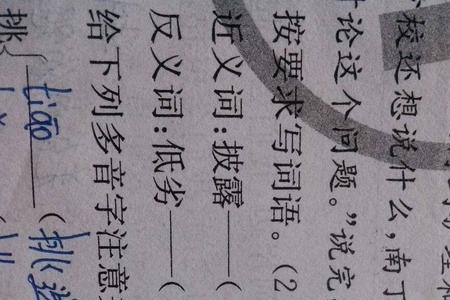 校还想说什么,南丁
讨论这个问题。”说完
按要求写词语。(2
近义词:披露____(
反义词:低劣____(
给下列多音字注意
挑{ tiāo ____(挑选